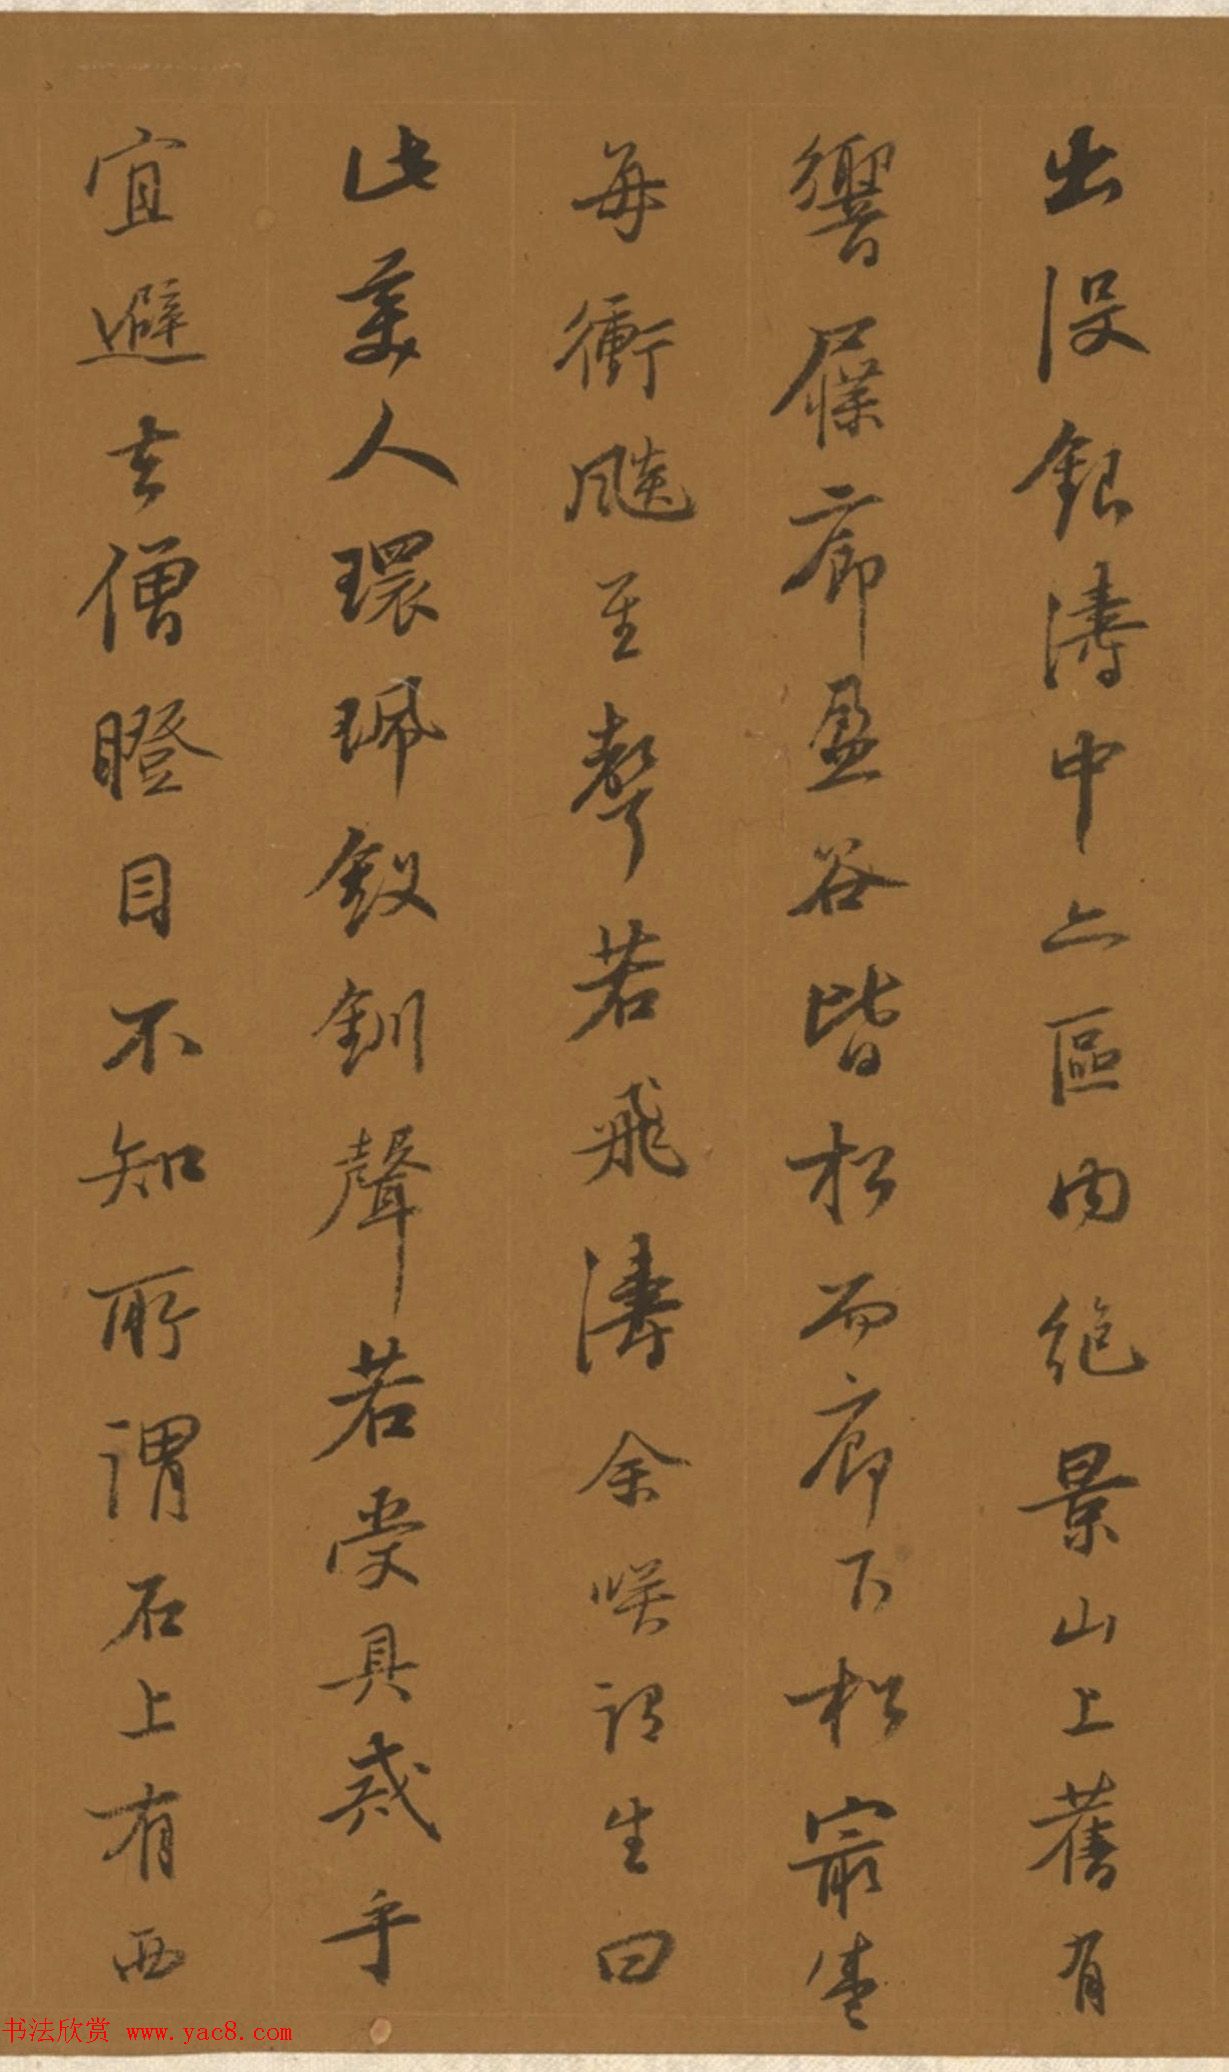 出没銀濤中亦區内絶景山上舊有
響屧廊盈谷皆松而廊下松最盛
每衝飈至聲若飛濤余咲謂生曰
此美人環珮釵釧聲若受具戒乎
宜避去僧瞪目不知所謂石上有西
书法欣赏 www.yac8.com